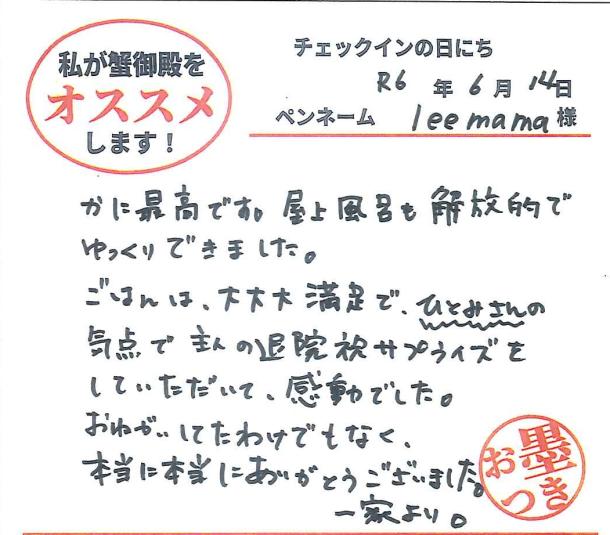 私が蟹御殿を
オススメ
します！
チェックインの日にち
R6 年 6 月 14日
ペンネーム leemama 様
かに最高です。屋上風呂も解放的で
ゆっくりできました。
ごはんは、大大大満足で、ひとみさんの
気点で主人の退院祝サプライズを
していただいて、感動でした。
おねがいしてたわけでもなく、
本当に本当にありがとうございました。
一家より。
お墨つき